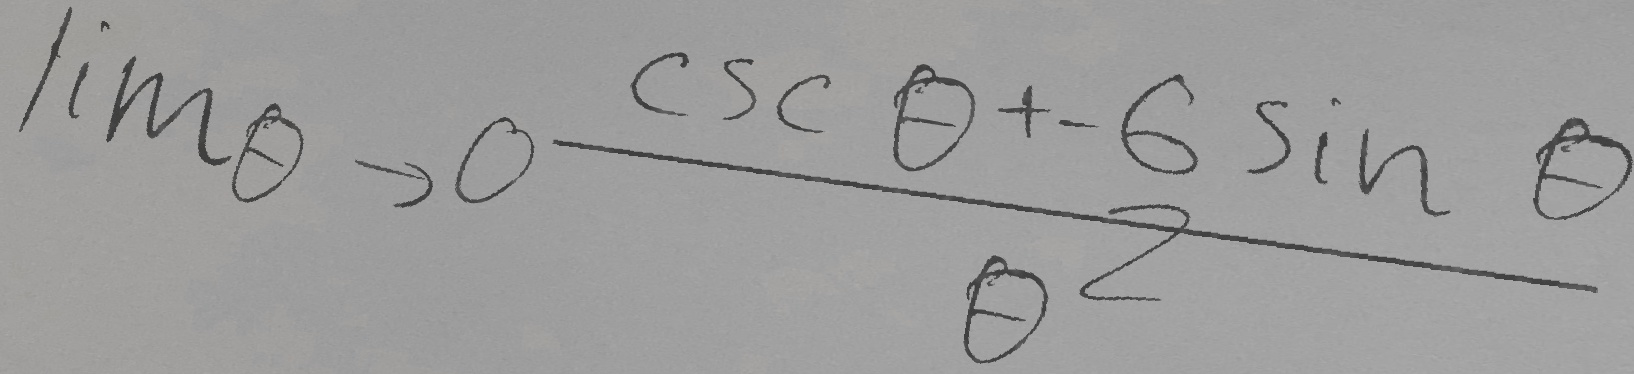 lim_{θ→0} \frac{csc θ + -6 sin θ}{θ^2}